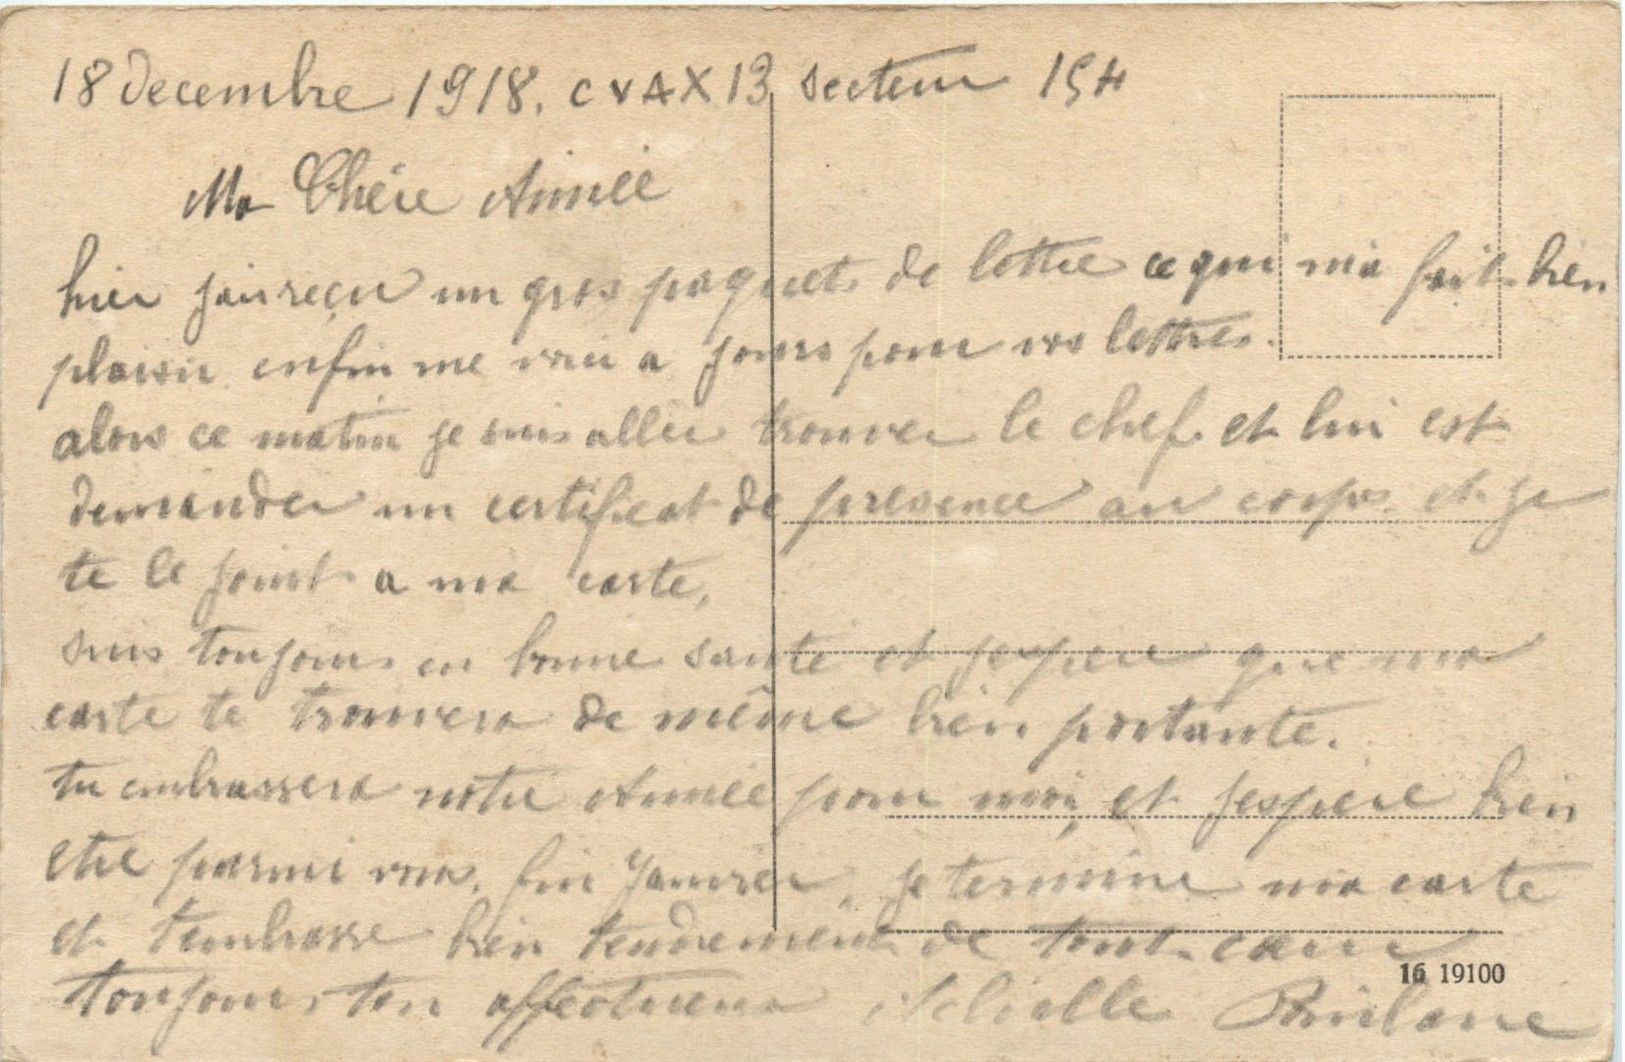 18 decembre 1918. CVAX13 secteur 154
Ma Chère Aimée
hier jai reçu un gros paquets de lettre ce qui ma fait bien
plaisir enfin me voici a jours pour vos lettres.
alors ce matin je suis aller trouver le chef et lui est
demander un certificat de presence au corps et je
te le joint a ma carte,
suis toujours en bonne santé et j'espere que ma
carte te trouvera de même bien portante.
tu embrassera notre Aimée pour moi, et j'espere bien
etre parmi vous, fin Janvier, je termine ma carte
et t'embrasse bien tendrement de tout cœur
16 19100
toujours ton affectueux Achille